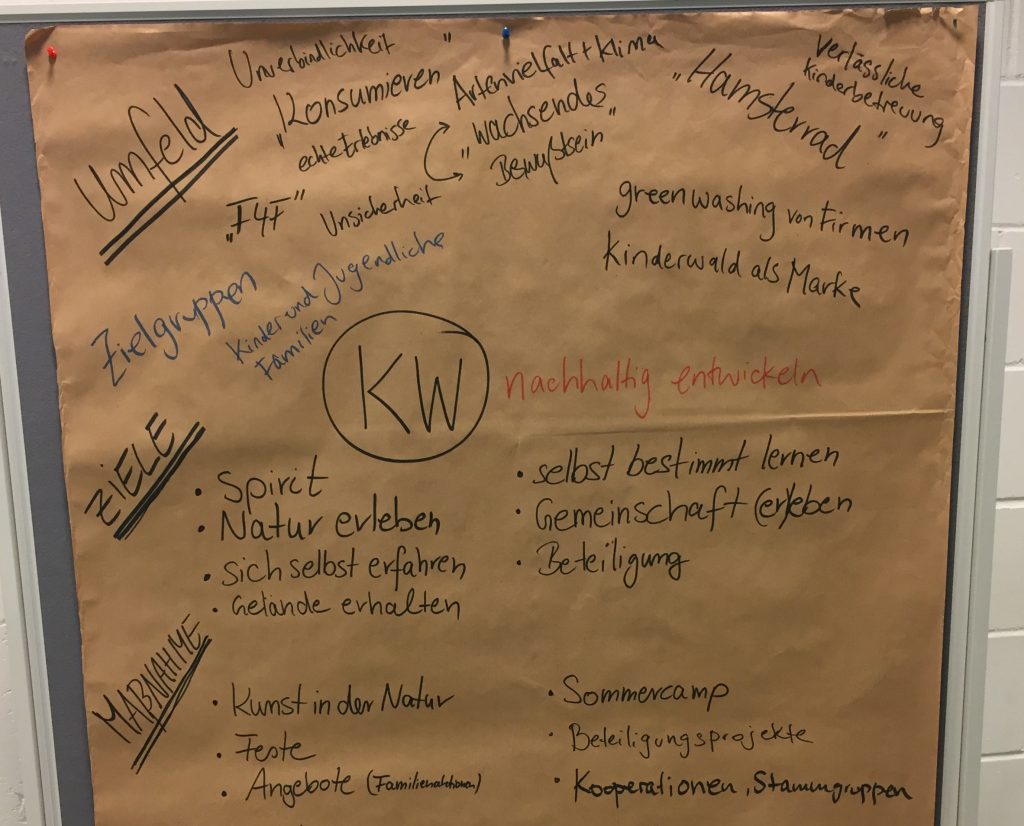 Umfeld
Unverbindlichkeit
"Konsumieren"
echte Erlebnisse
"F4F"
Unsicherheit
Artenvielfalt + Klima
"wachsendes
Bewußtsein"
"Hamsterrad"
Verlässliche
Kinderbetreuung
greenwashing von Firmen
Kinderwald als Marke
Zielgruppen
Kinder und Jugendliche
Familien
KW
nachhaltig entwickeln
ZIELE
• Spirit
• Natur erleben
• sich selbst erfahren
• Gelände erhalten
• selbst bestimmt lernen
• Gemeinschaft (er)leben
• Beteiligung
MAßNAHME
• Kunst in der Natur
• Feste
• Angebote (Familienaktionen)
• Sommercamp
• Beteiligungsprojekte
• Kooperationen, Stammgruppen